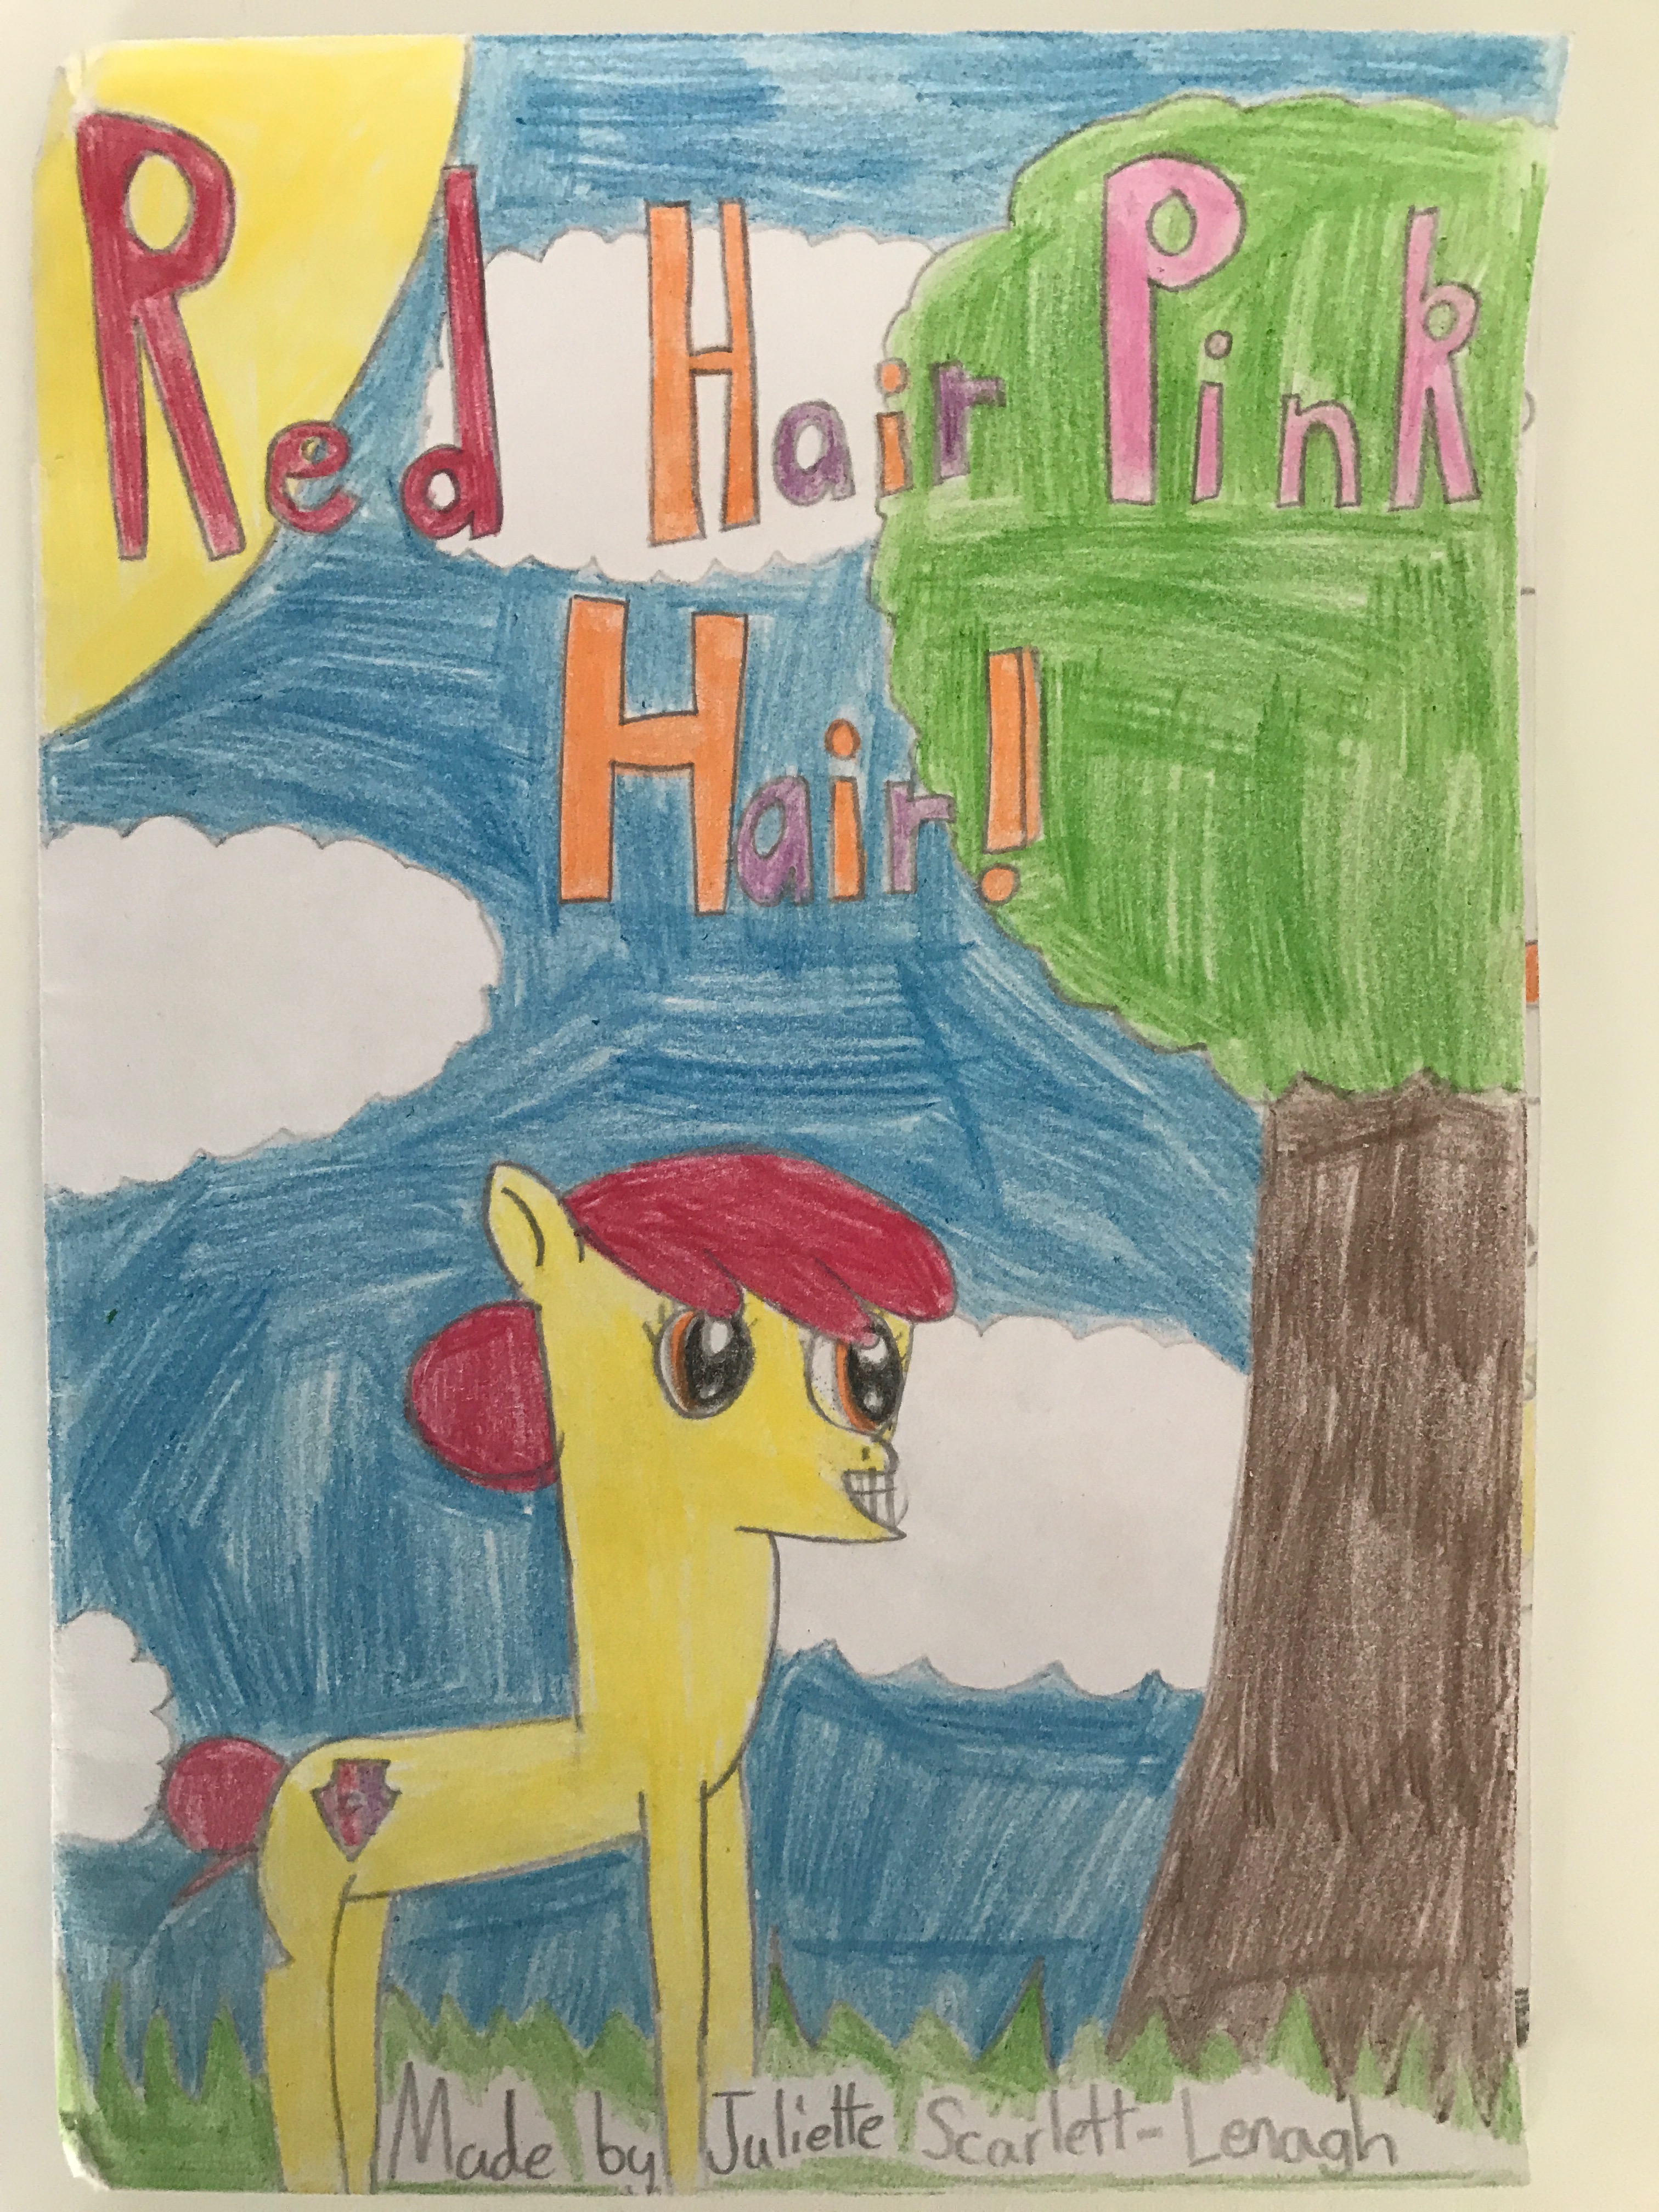 Red Hair Pink
Hair!
Made by Juliette Scarlett-Lenagh